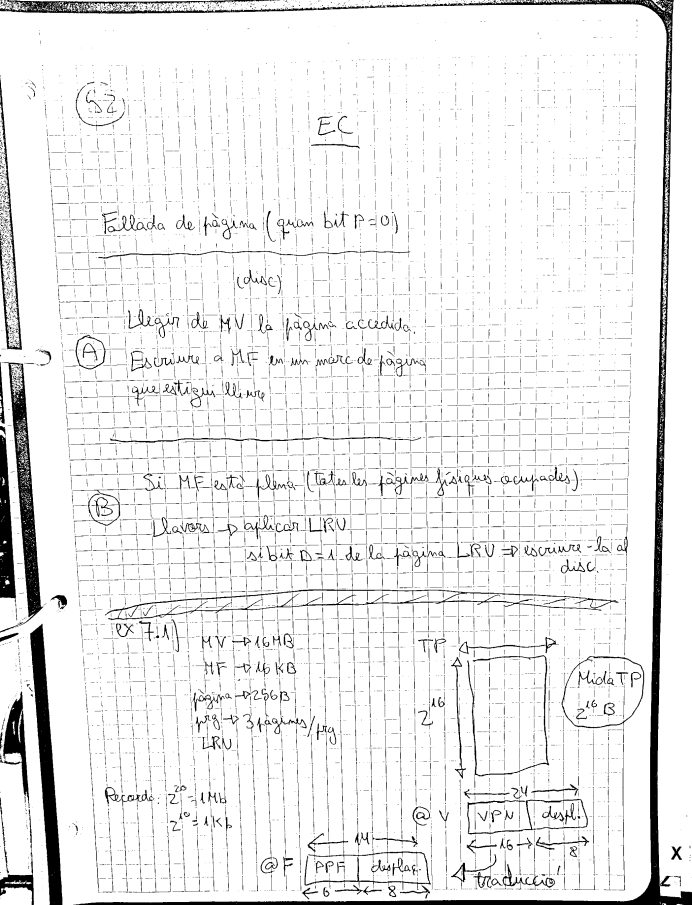 52
EC
Fallada de pàgina (quan bit P=0)
(disc)
Llegir de MV la pàgina accedida.
A
Escriure a MF en un marc de pàgina
que estigui lliure
Si MF està plena (totes les pàgines físiques ocupades)
B
Llavors → aplicar LRU
si bit D=1 de la pàgina LRU ⇒ escriure-la al
disc.
ex 7.1)
MV → 16MB
MF → 16KB
pàgina → 256B
prg → 3 pàgines/prg
LRU
TP
2^16
Mida TP
2^16 B
Recordo: 2^20 = 1Mb
2^10 = 1Kb
24
@V VPN despl.
16 8
traducció
14
@F PPF desplaç.
6 8
X